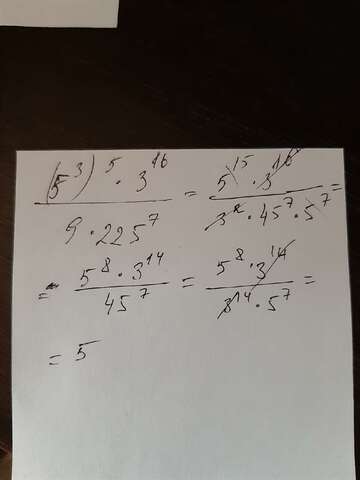 (5³)⁵ · 3¹⁶ / 9 · 225⁷ = 5¹⁵ · 3¹⁶ / 3² · 45⁷ · 5⁷ =
= 5⁸ · 3¹⁴ / 45⁷ = 5⁸ · 3¹⁴ / 3¹⁴ · 5⁷ =
= 5